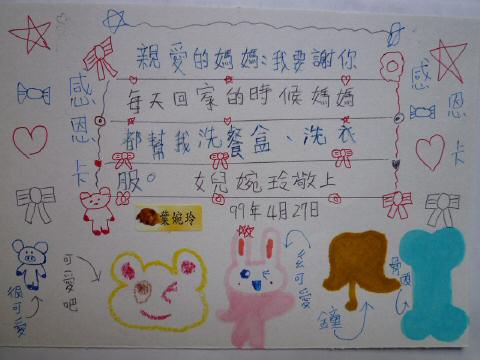 親愛的媽媽:我要謝你
每天回家的時候媽媽
都幫我洗餐盒、洗衣
服。 女兒婉玲敬上
99年4月27日
感恩卡
感恩卡
葉婉玲
很可愛
可愛
鐘
骨頭